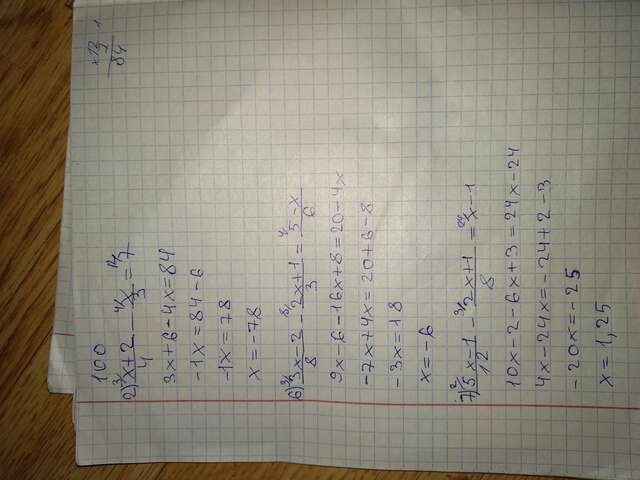 100
2) ³⁄x+2/4 - ⁴⁄x/3 = ¹²⁄7
3x+6-4x=84
-1x=84-6
-1x=78
x=-78
6) ³⁄3x-2/8 - ⁸⁄2x+1/3 = ⁴⁄5-x/6
9x-6-16x+8=20-4x
-7x+4x=20+6-8
-3x=18
x=-6
7) ²⁄5x-1/12 - ³⁄2x+1/8 = ²⁴⁄x-1
10x-2-6x+3=24x-24
4x-24x=-24+2-3
-20x=-25
x=1,25
84